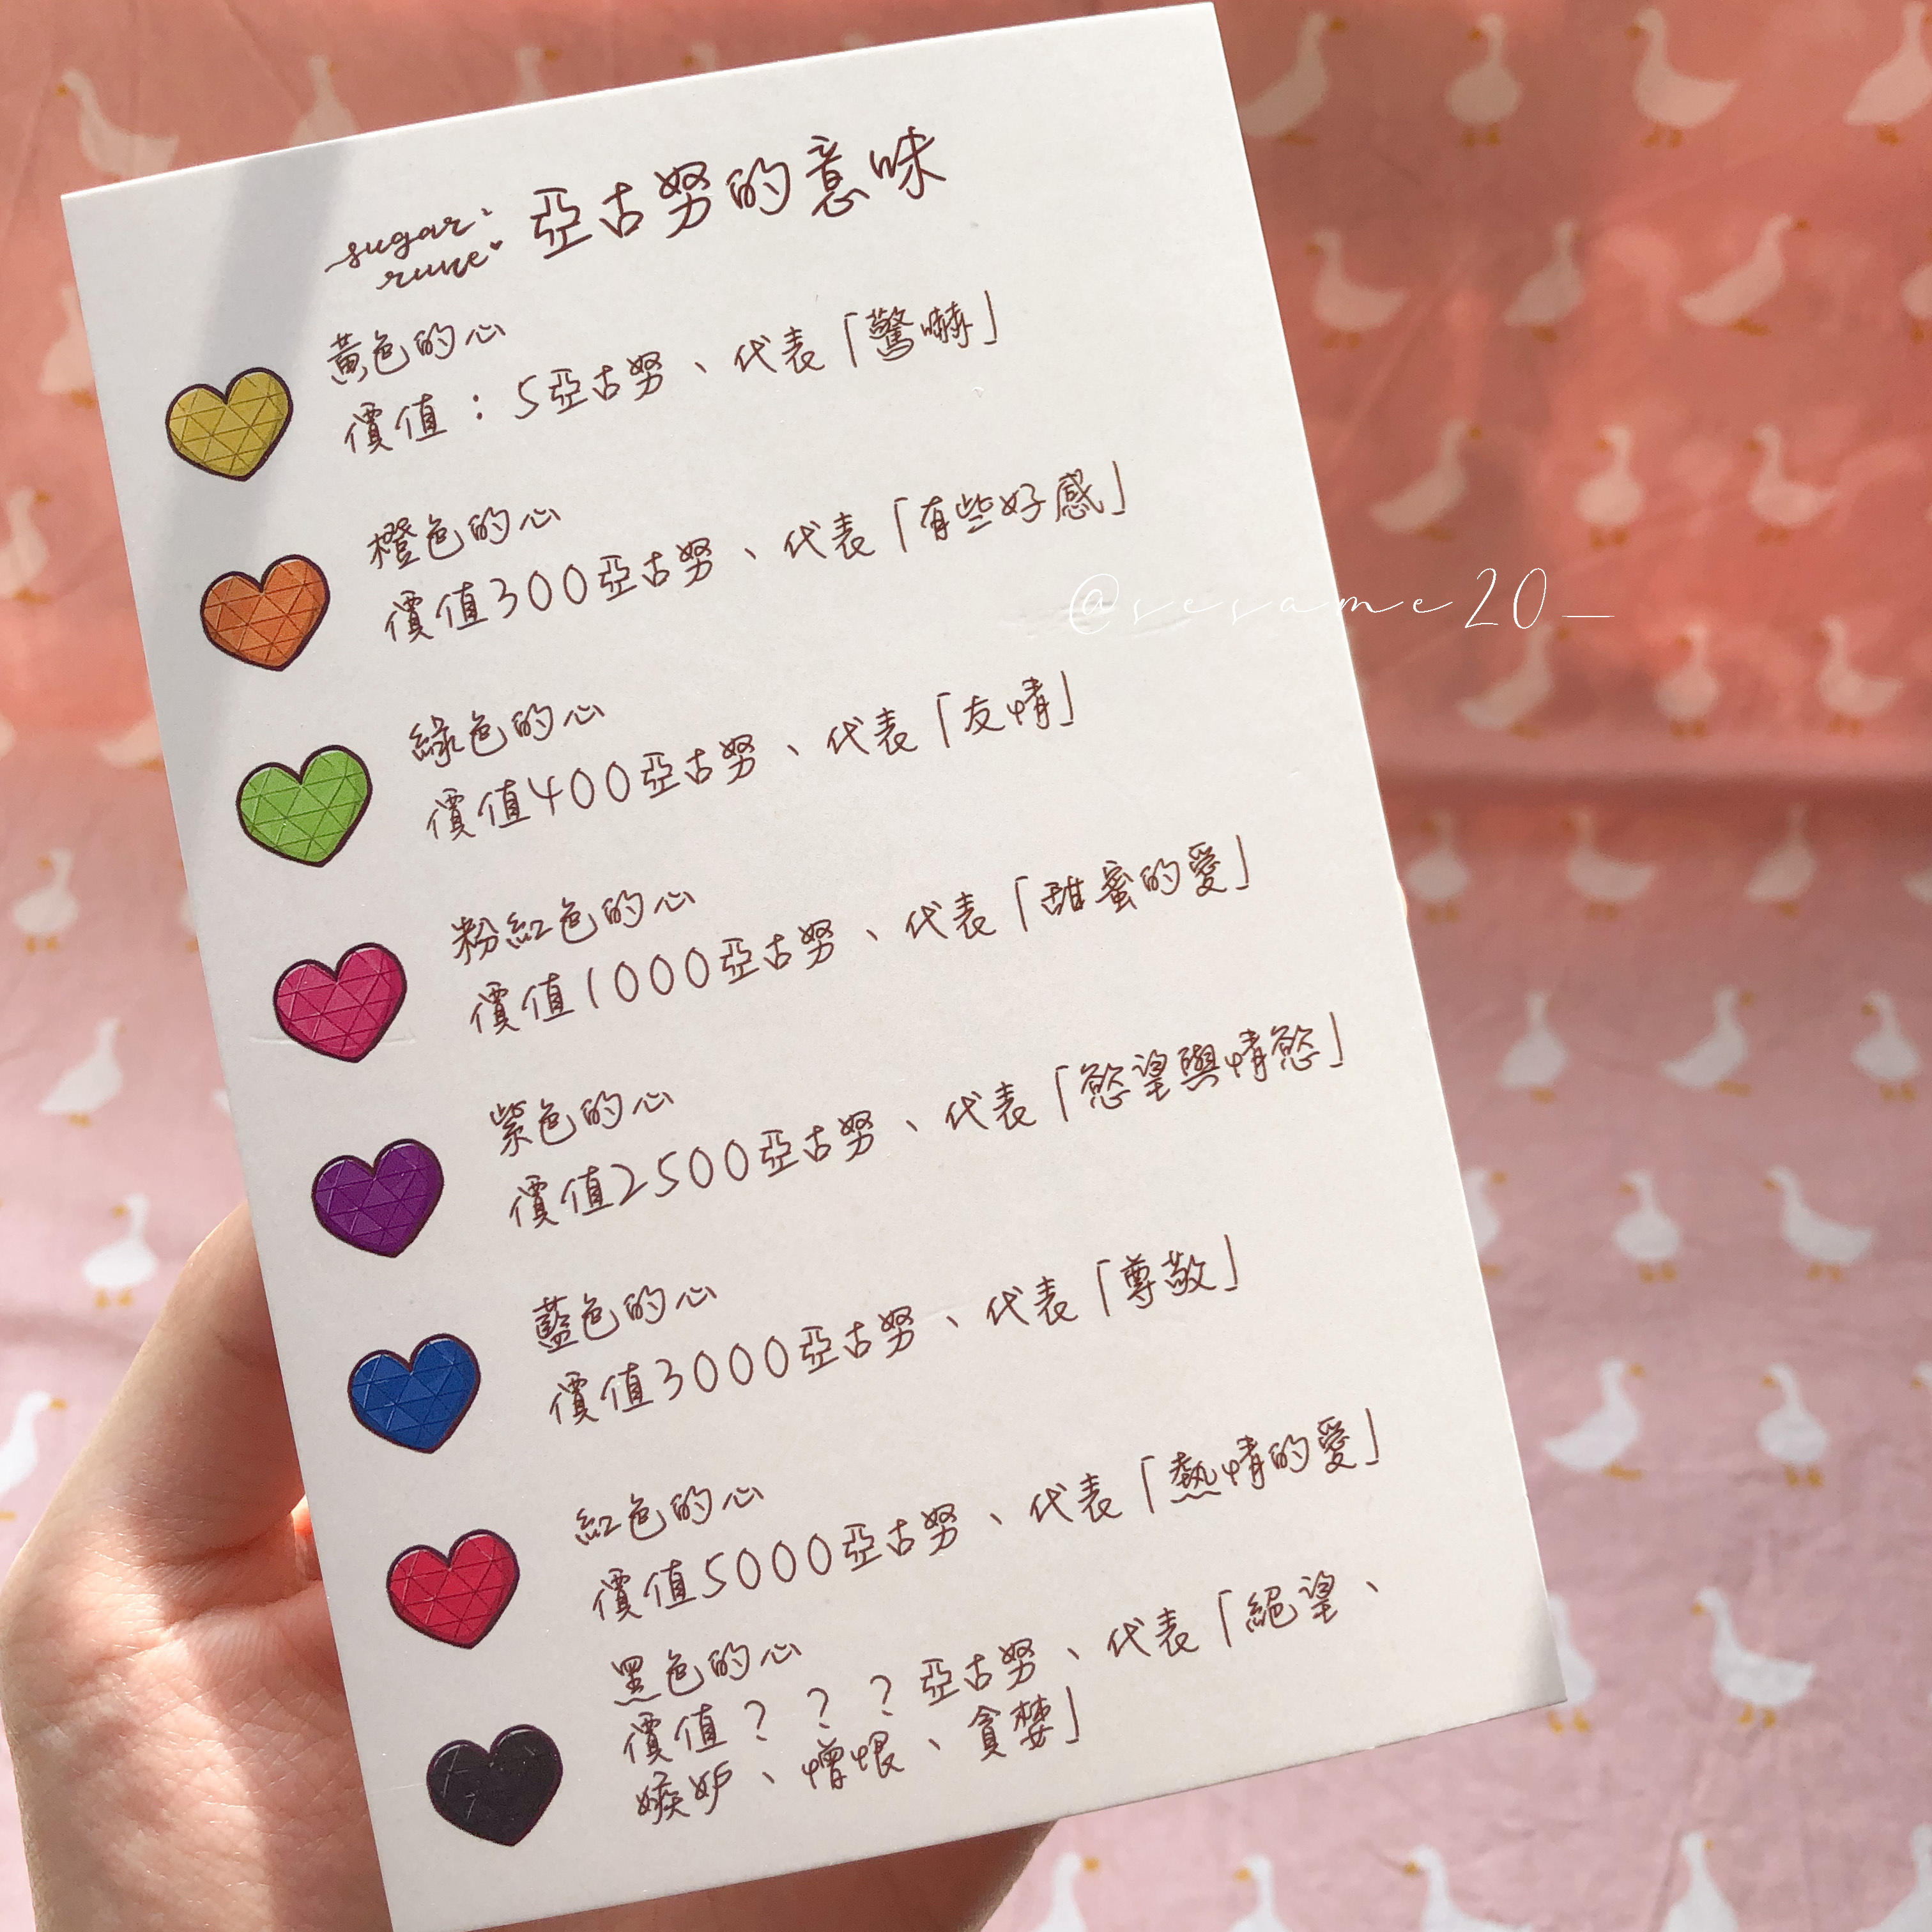 sugar
rune
亞古努的意味
黃色的心
價值：5亞古努、代表「驚嚇」
橙色的心
價值300亞古努、代表「有些好感」
@sesame20_
綠色的心
價值400亞古努、代表「友情」
粉紅色的心
價值1000亞古努、代表「甜蜜的愛」
紫色的心
價值2500亞古努、代表「慾望與情慾」
藍色的心
價值3000亞古努、代表「尊敬」
紅色的心
價值5000亞古努、代表「熱情的愛」
黑色的心
價值？？？亞古努、代表「絕望、
嫉妒、憎恨、貪婪」